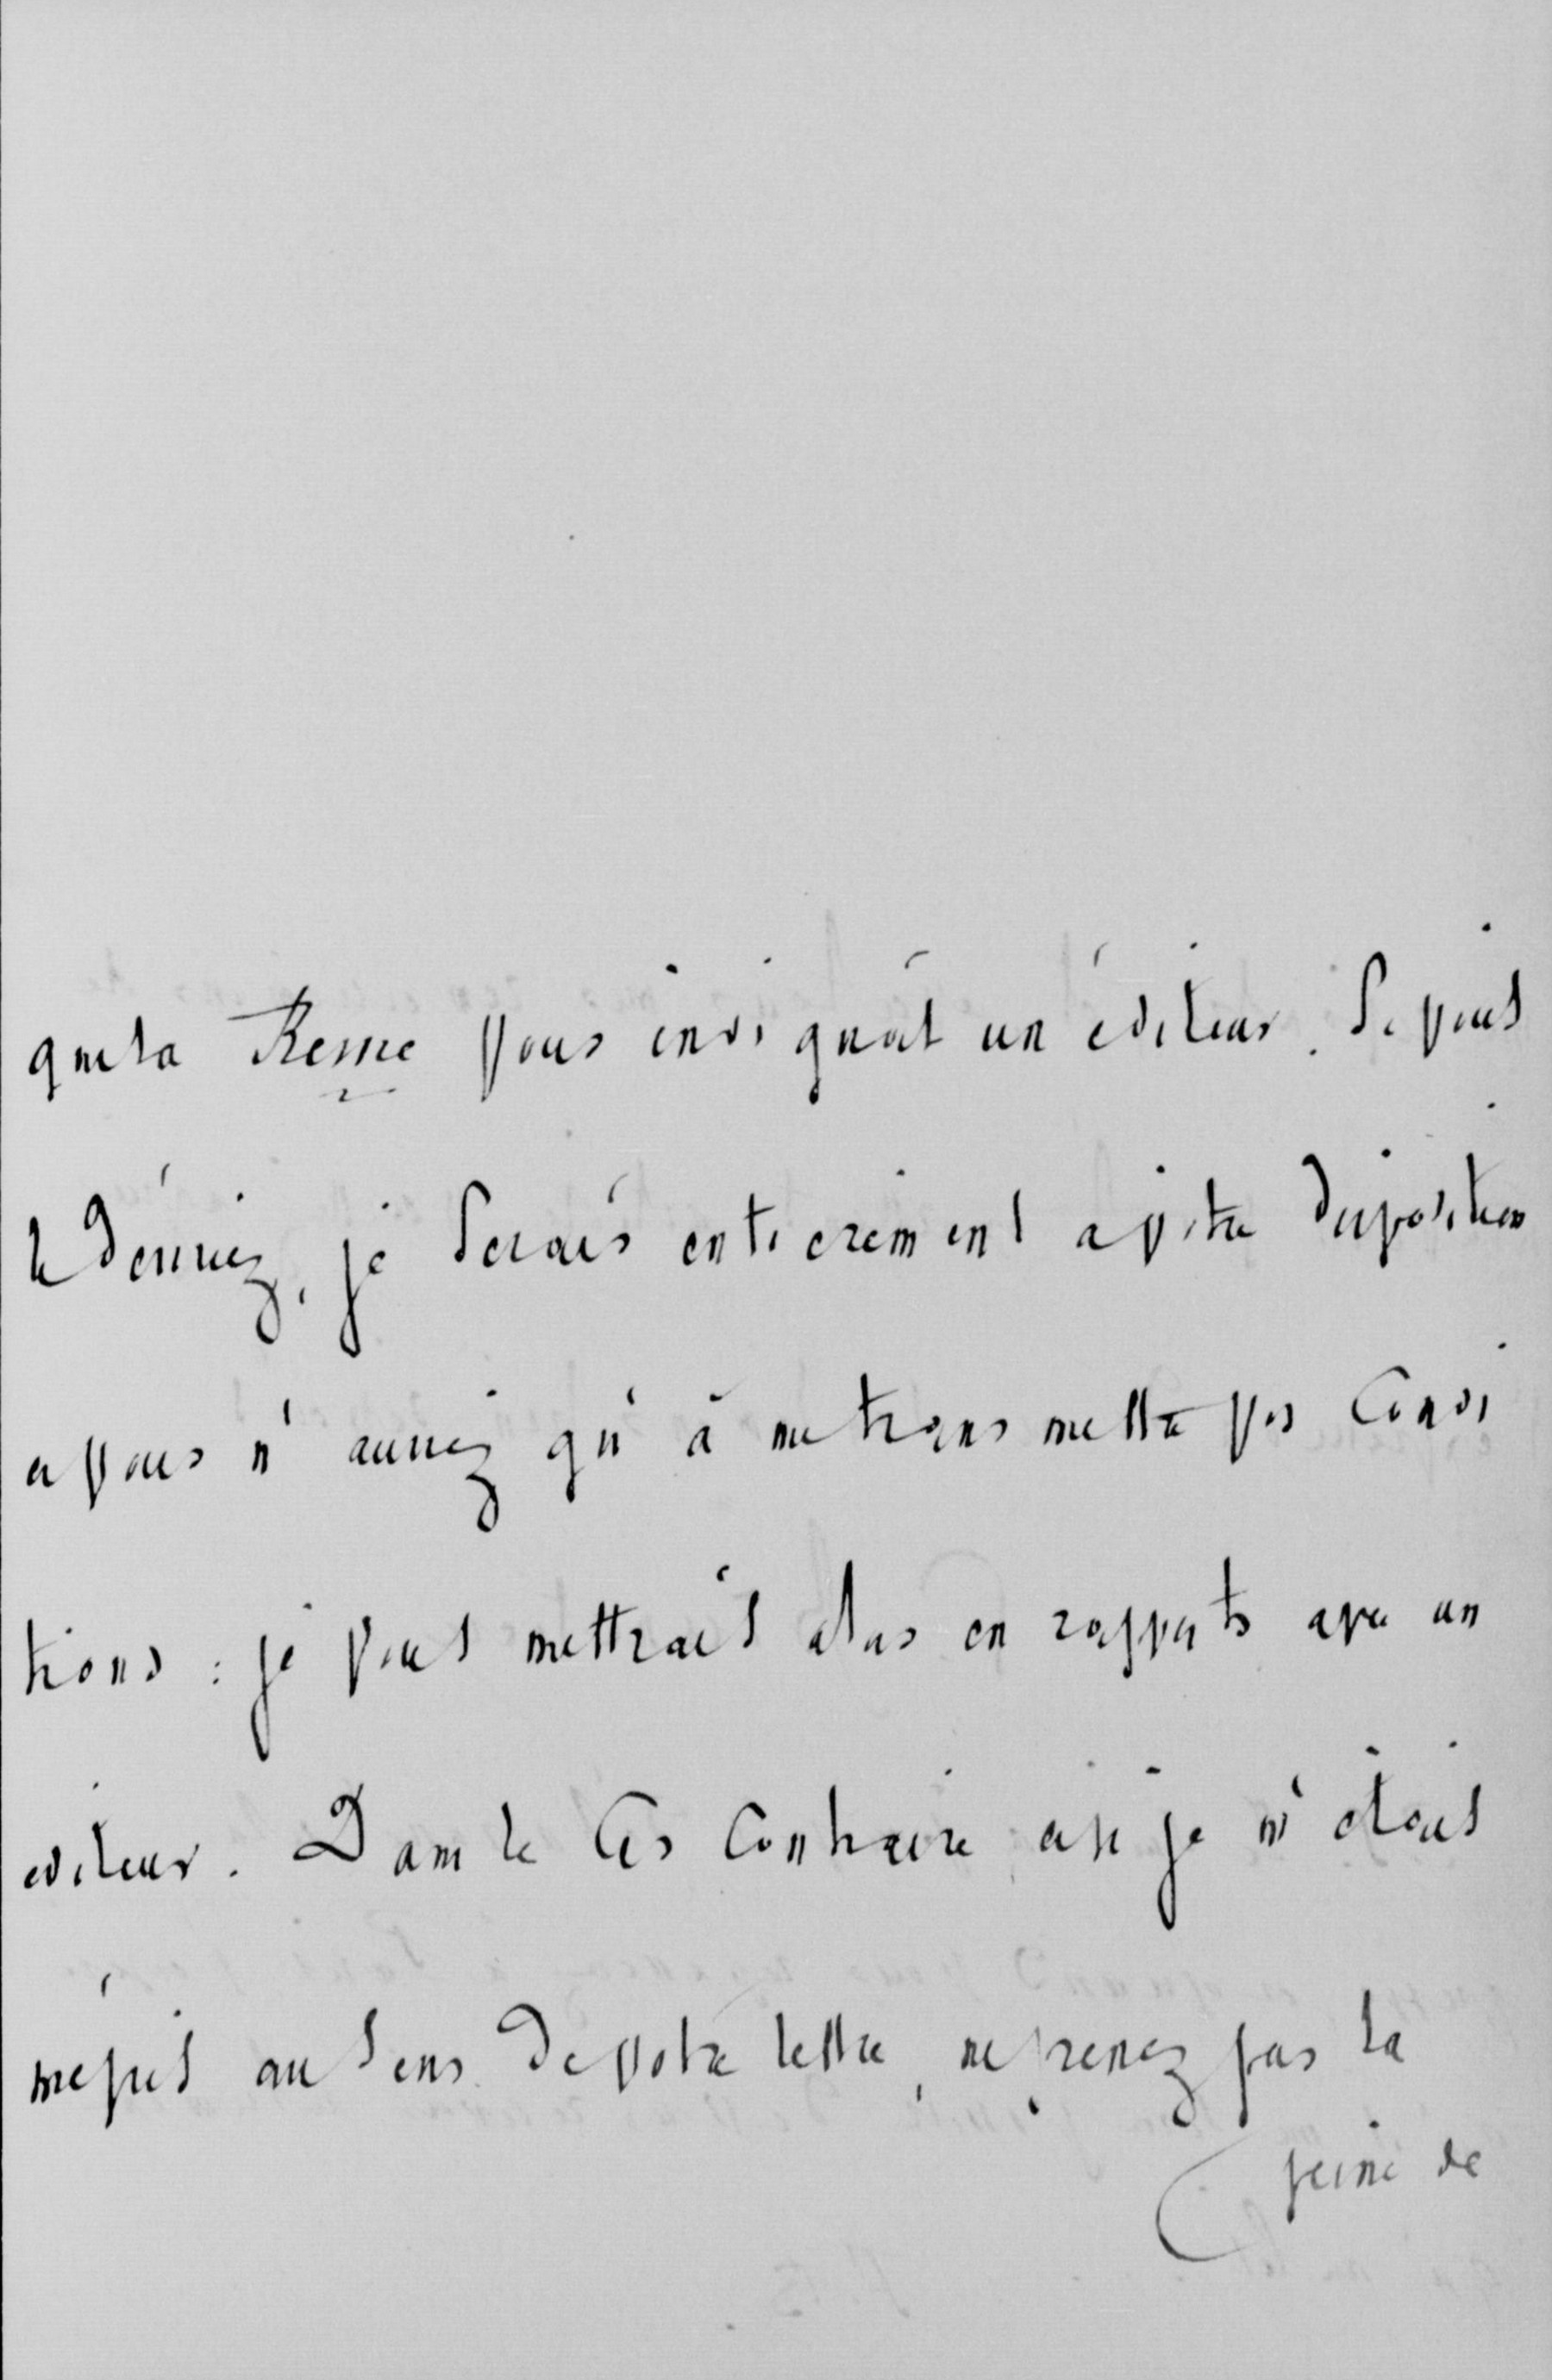 que la Revue vous indiquât un éditeur. Si vous
le désiriez, je serais entièrement à votre disposition
et vous n'auriez qu'à me transmettre vos condi
tions : je vous mettrais alors en rapports avec un
editeur. Dans le cas contraire, et si je m'étais
mépris au sens de votre lettre, ne prenez pas la
peine de